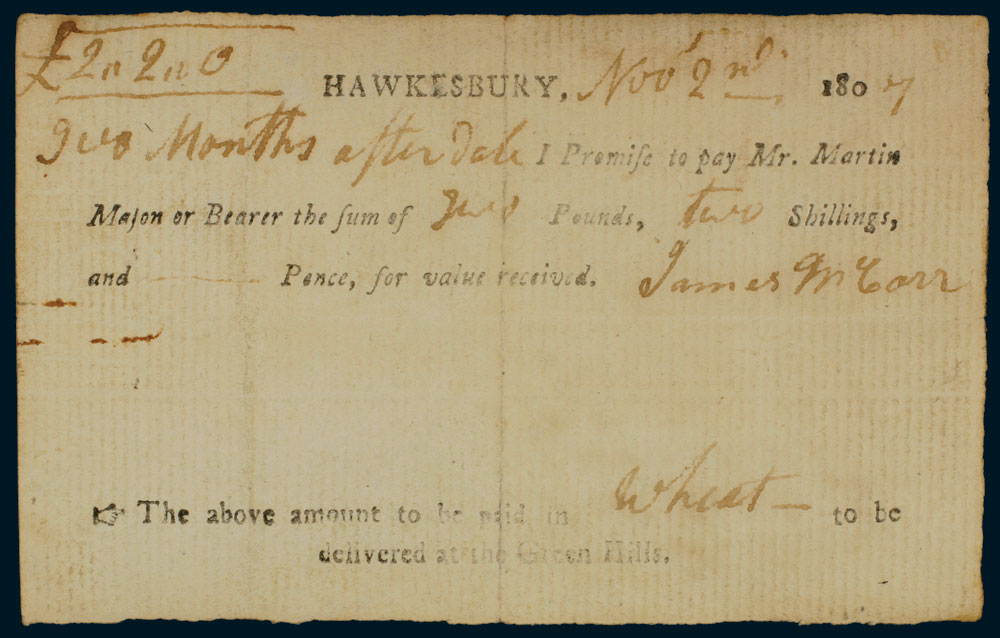 £2 " 2 " 0
HAWKESBURY, Nov' 2nd 1807
Two Months after date I Promiſe to pay Mr. Martin
Maſon or Bearer the ſum of Two Pounds, two Shillings,
and — Pence, for value received. James McCarr
☞ The above amount to be paid in Wheat — to be
delivered at the Green Hills.